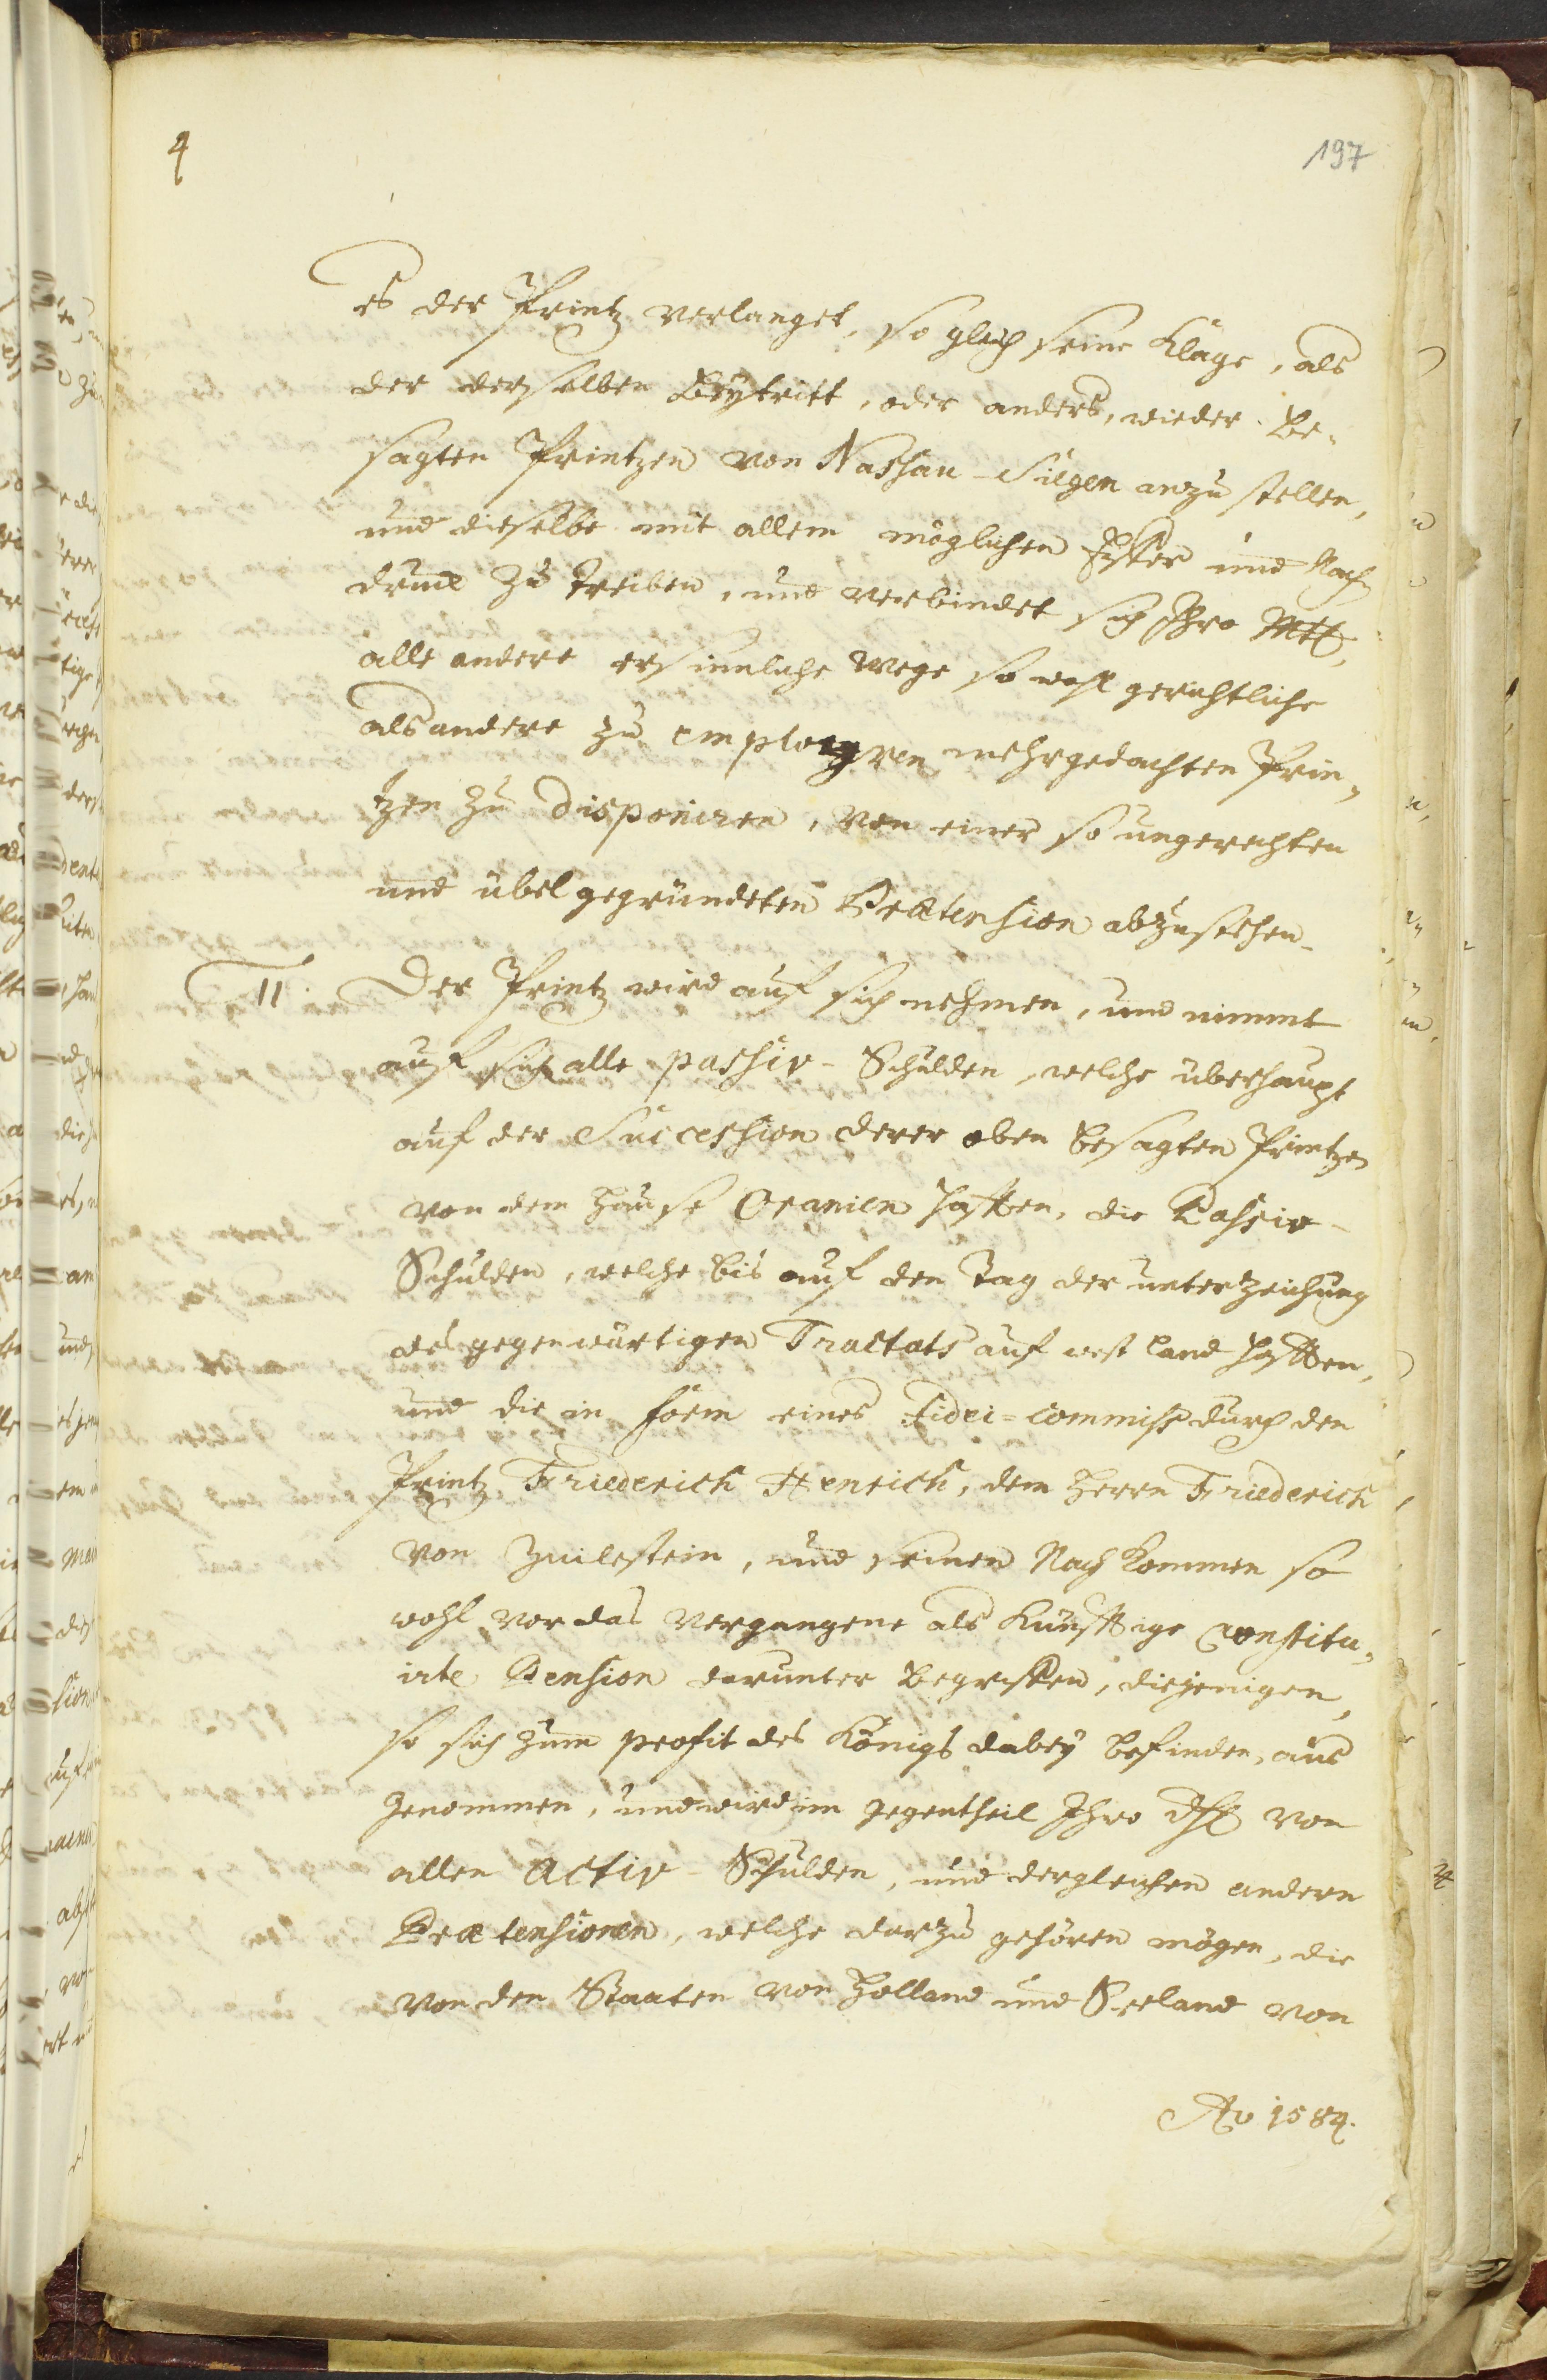 4
197
es der Printz verlanget, so gleich seine Klage, als
der derselben Beytritt, oder anders, wieder be„
sagten Printzen von Nassau-Siegen anzustellen,
und dieselbe mit allem möglichen Eyffer und Nach
druck zu treiben, und verbindet sich Ihro Mtt,
alle andere ersinnliche Wege so wohl gerichtliche
als andere zu employren, mehrgedachten Prin„
tzen zu disponiren, von einer so ungerechten
und übel gegründeten Prætension abzustehen.
11. Der Printz wird auf sich nehmen, und nimmt
auf sich alle passiv-Schulden, welche überhaupt
auf der Succession derer oben besagten Printzen
von dem Hause Oranien hafften, die Passiv-
Schulden, welche bis auf den Tag der unterzeichung
des gegenwärtigen Tractats auf west land hafften,
und die in form eines Fidei=commiss durch den
Printz Friederich Henrich, dem Herrn Friederich
von Zuilestein, und seinen Nach kommen so
wohl vor das vergangene als künfftige constitu„
irte Pension darunter begriffen, diejenigen,
so sich zum profit des Königs dabey befinden, aus
genommen, und wird im gegentheil Ihro von
allen activ-Schulden, und dergleichen andern
Prætensionen, welche darzu gehören mögen, die
von den Staaten von Holland und Seeland von
Ao 1584.